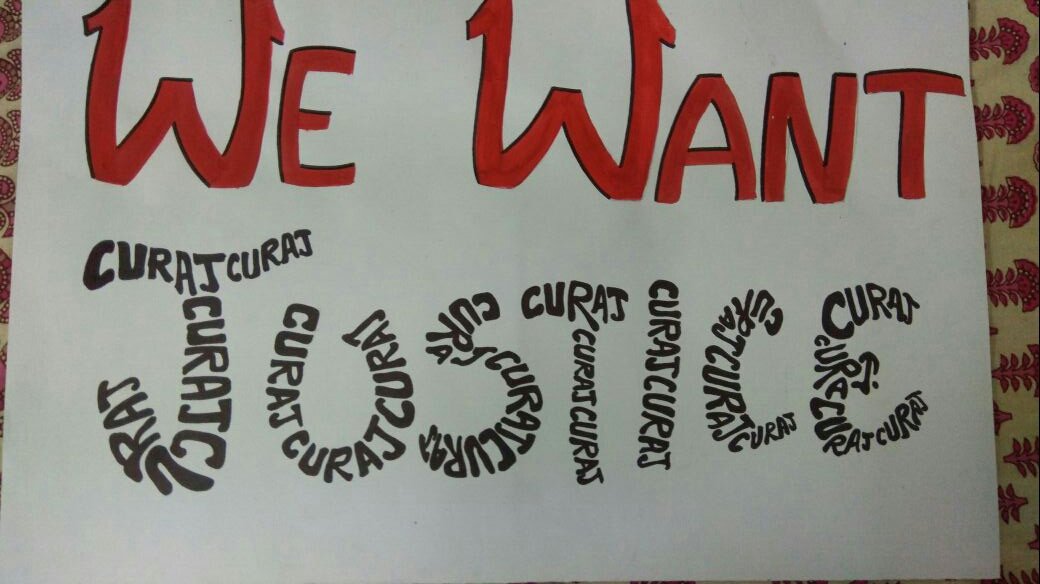 WE WANT
JUSTICE
CURAJ CURAJ CURAJ CURAJ
CURAJ CURAJ CURAJ
CURAJ CURAJ CURAJ CURAJ
CURAJ CURAJ CURAJ
CURAJ CURAJ
CURAJ CURAJ CURAJ
CURAJ CURAJ CURAJ